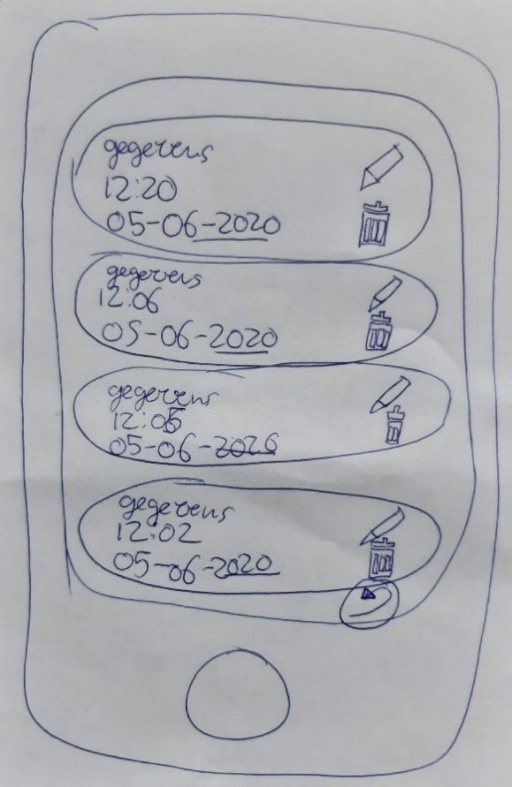 gegevens
12:20
05-06-2020
gegevens
12:06
05-06-2020
gegevens
12:05
05-06-2020
gegevens
12:02
05-06-2020